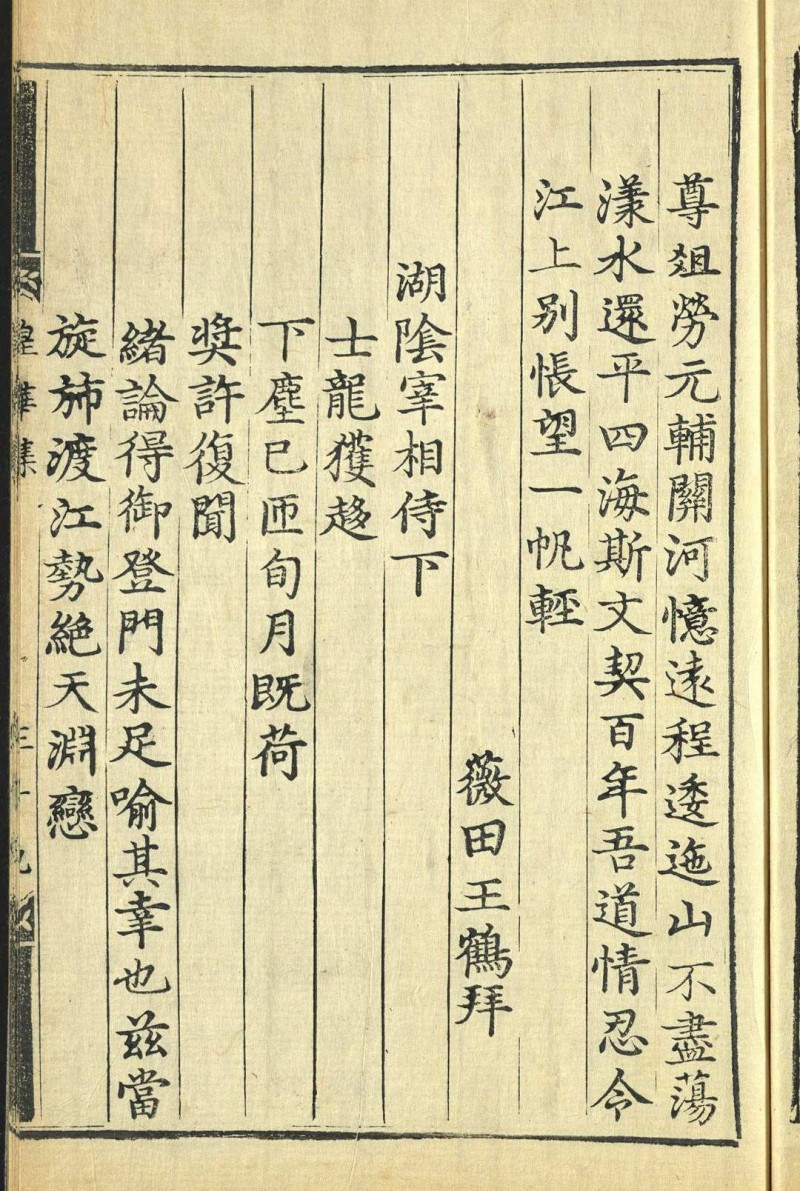 尊爼勞元輔關河憶遠程逶迤山不盡蕩
漾水還平四海斯文契百年吾道情忍令
江上别悵望一帆輕
薇田王鶴拜
湖陰宰相侍下
士龍獲趍
下塵已匝旬月既荷
奬許復聞
緒論得御登門未足喻其幸也茲當
旋斾渡江勢絶天淵戀
皇華集